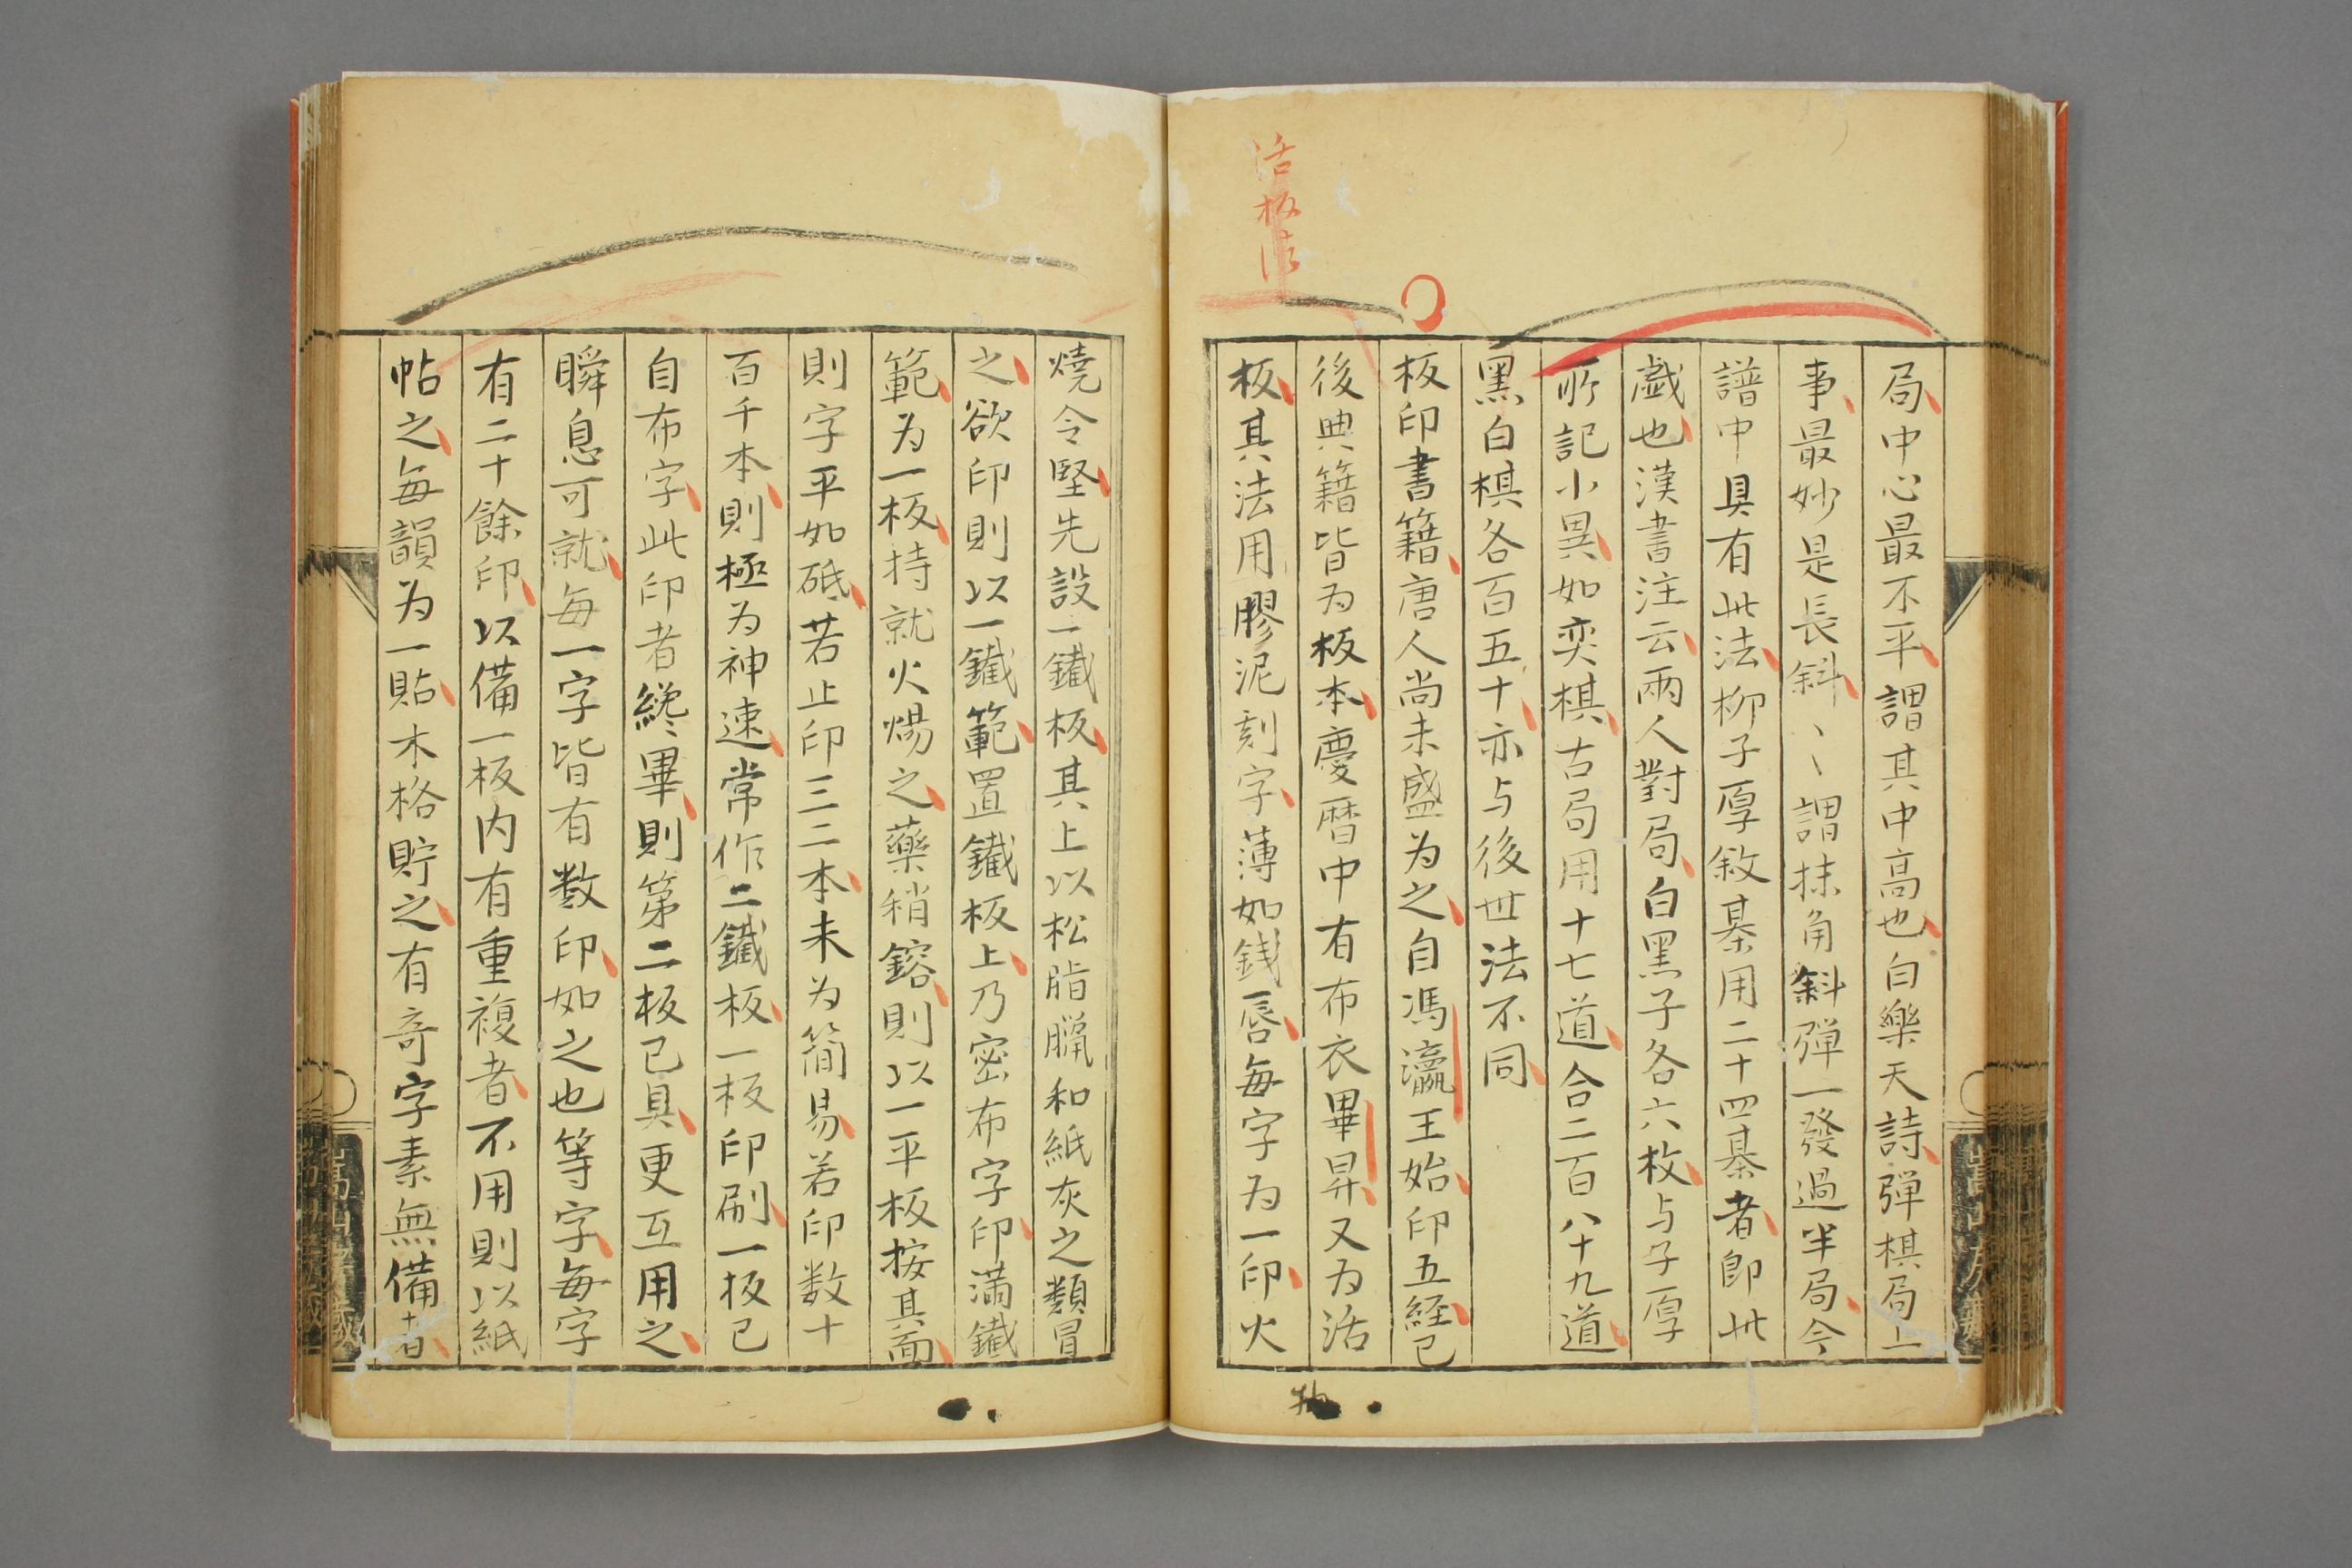 活板法
局中心最不平謂其中高也白樂天詩彈棋局上
事最妙是長斜〻謂抹角斜彈一發過半局今
譜中具有此法柳子厚敘棊用二十四棊者即此
戯也漢書注云兩人對局白黑子各六枚与子厚
所記小異如奕棋古局用十七道合二百八十九道
黑白棋各百五十亦与後世法不同
板印書籍唐人尚未盛为之自馮瀛王始印五経已
後典籍皆为板本慶暦中有布衣畢昇又为活
板其法用膠泥刻字薄如銭唇每字为一印火
燒令堅先設一鐵板其上以松脂臘和紙灰之類冒
之欲印則以一鐵範置鐵板上乃密布字印滿鐵
範为一板持就火煬之藥稍鎔則以一平板按其面
則字平如砥若止印三二本未为簡易若印数十
百千本則極为神速常作二鐵板一板印刷一板已
自布字此印者纔畢則第二板已具更互用之
瞬息可就每一字皆有数印如之也等字每字
有二十餘印以備一板内有重複者不用則以紙
帖之每韻为一貼木格貯之有奇字素無備者